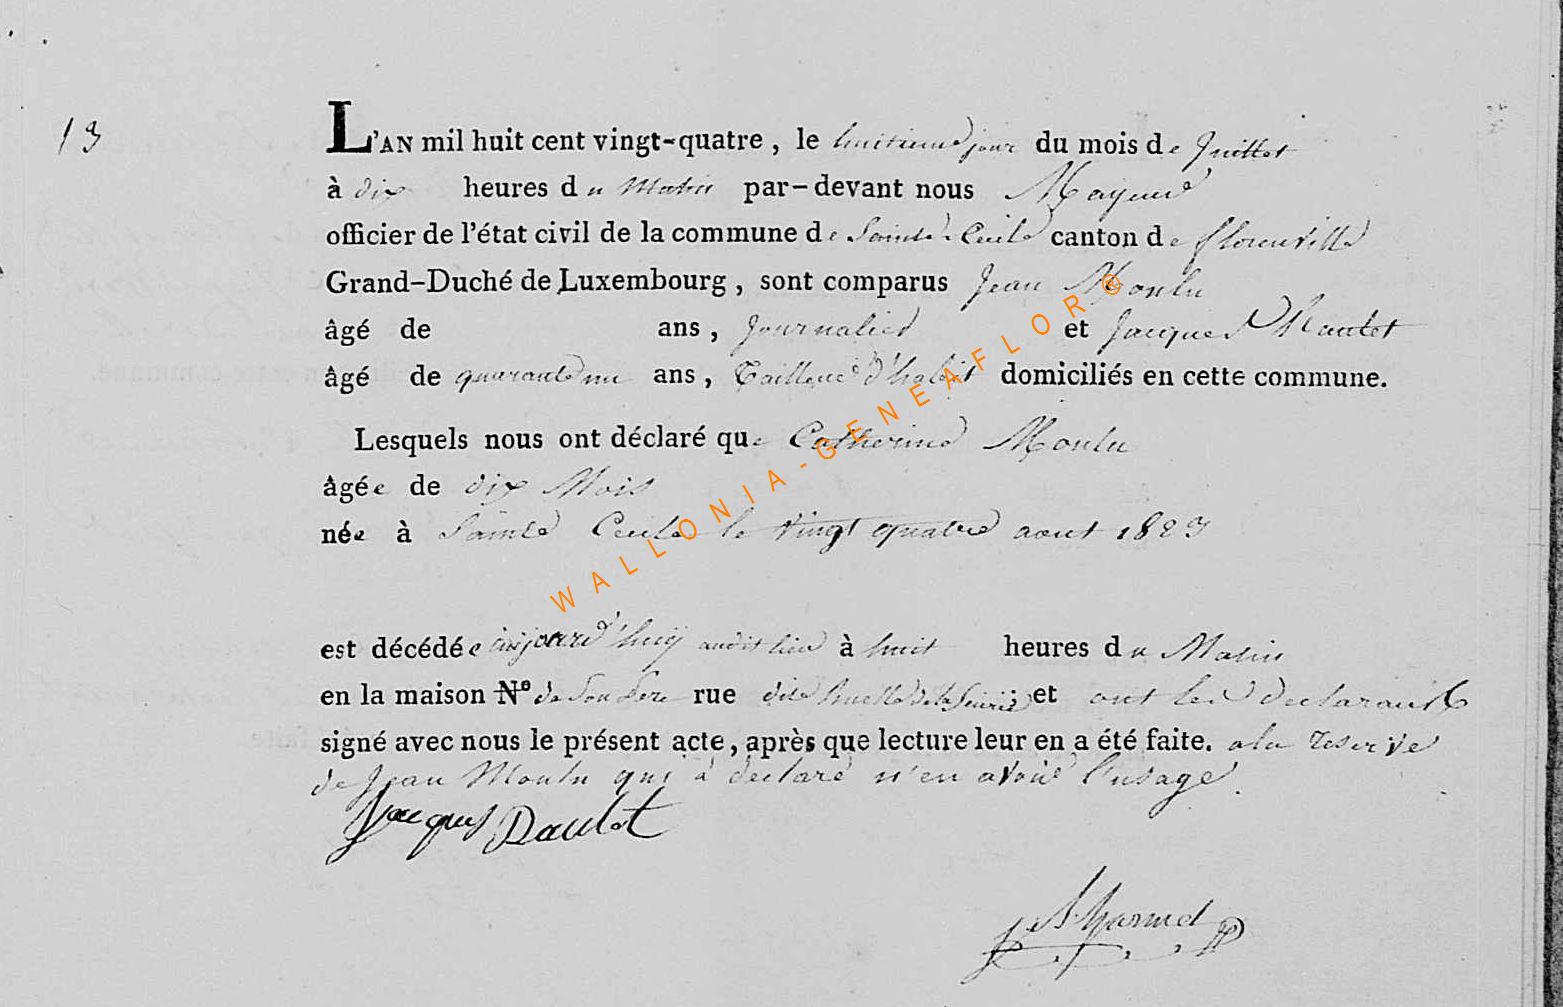 13
L'AN mil huit cent vingt-quatre, le huitieme jour du mois de Juillet
à dix heures du Matin par-devant nous Mayeur
officier de l'état civil de la commune de Sainte Cecile canton de florenville
Grand-Duché de Luxembourg, sont comparus Jean Moulu
âgé de ans, Journalier et Jacques
âgé de quarante un ans, Tailleur d'habit domiciliés en cette commune.
Lesquels nous ont déclaré que Catherine Moulu
âgée de dix Mois
née à Sainte Cecile le vingt quatre aout 1823
est décédée aujourd'huy audit lieu à huit heures du Matin
en la maison N° de Son Pere rue dite Ruelle de la et ont les declarants
signé avec nous le présent acte, après que lecture leur en a été faite. a la reserve
de Jean Moulu qui a declaré n'en avoir l'usage.
Jacques
WALLONIA-GENEAFLOR®